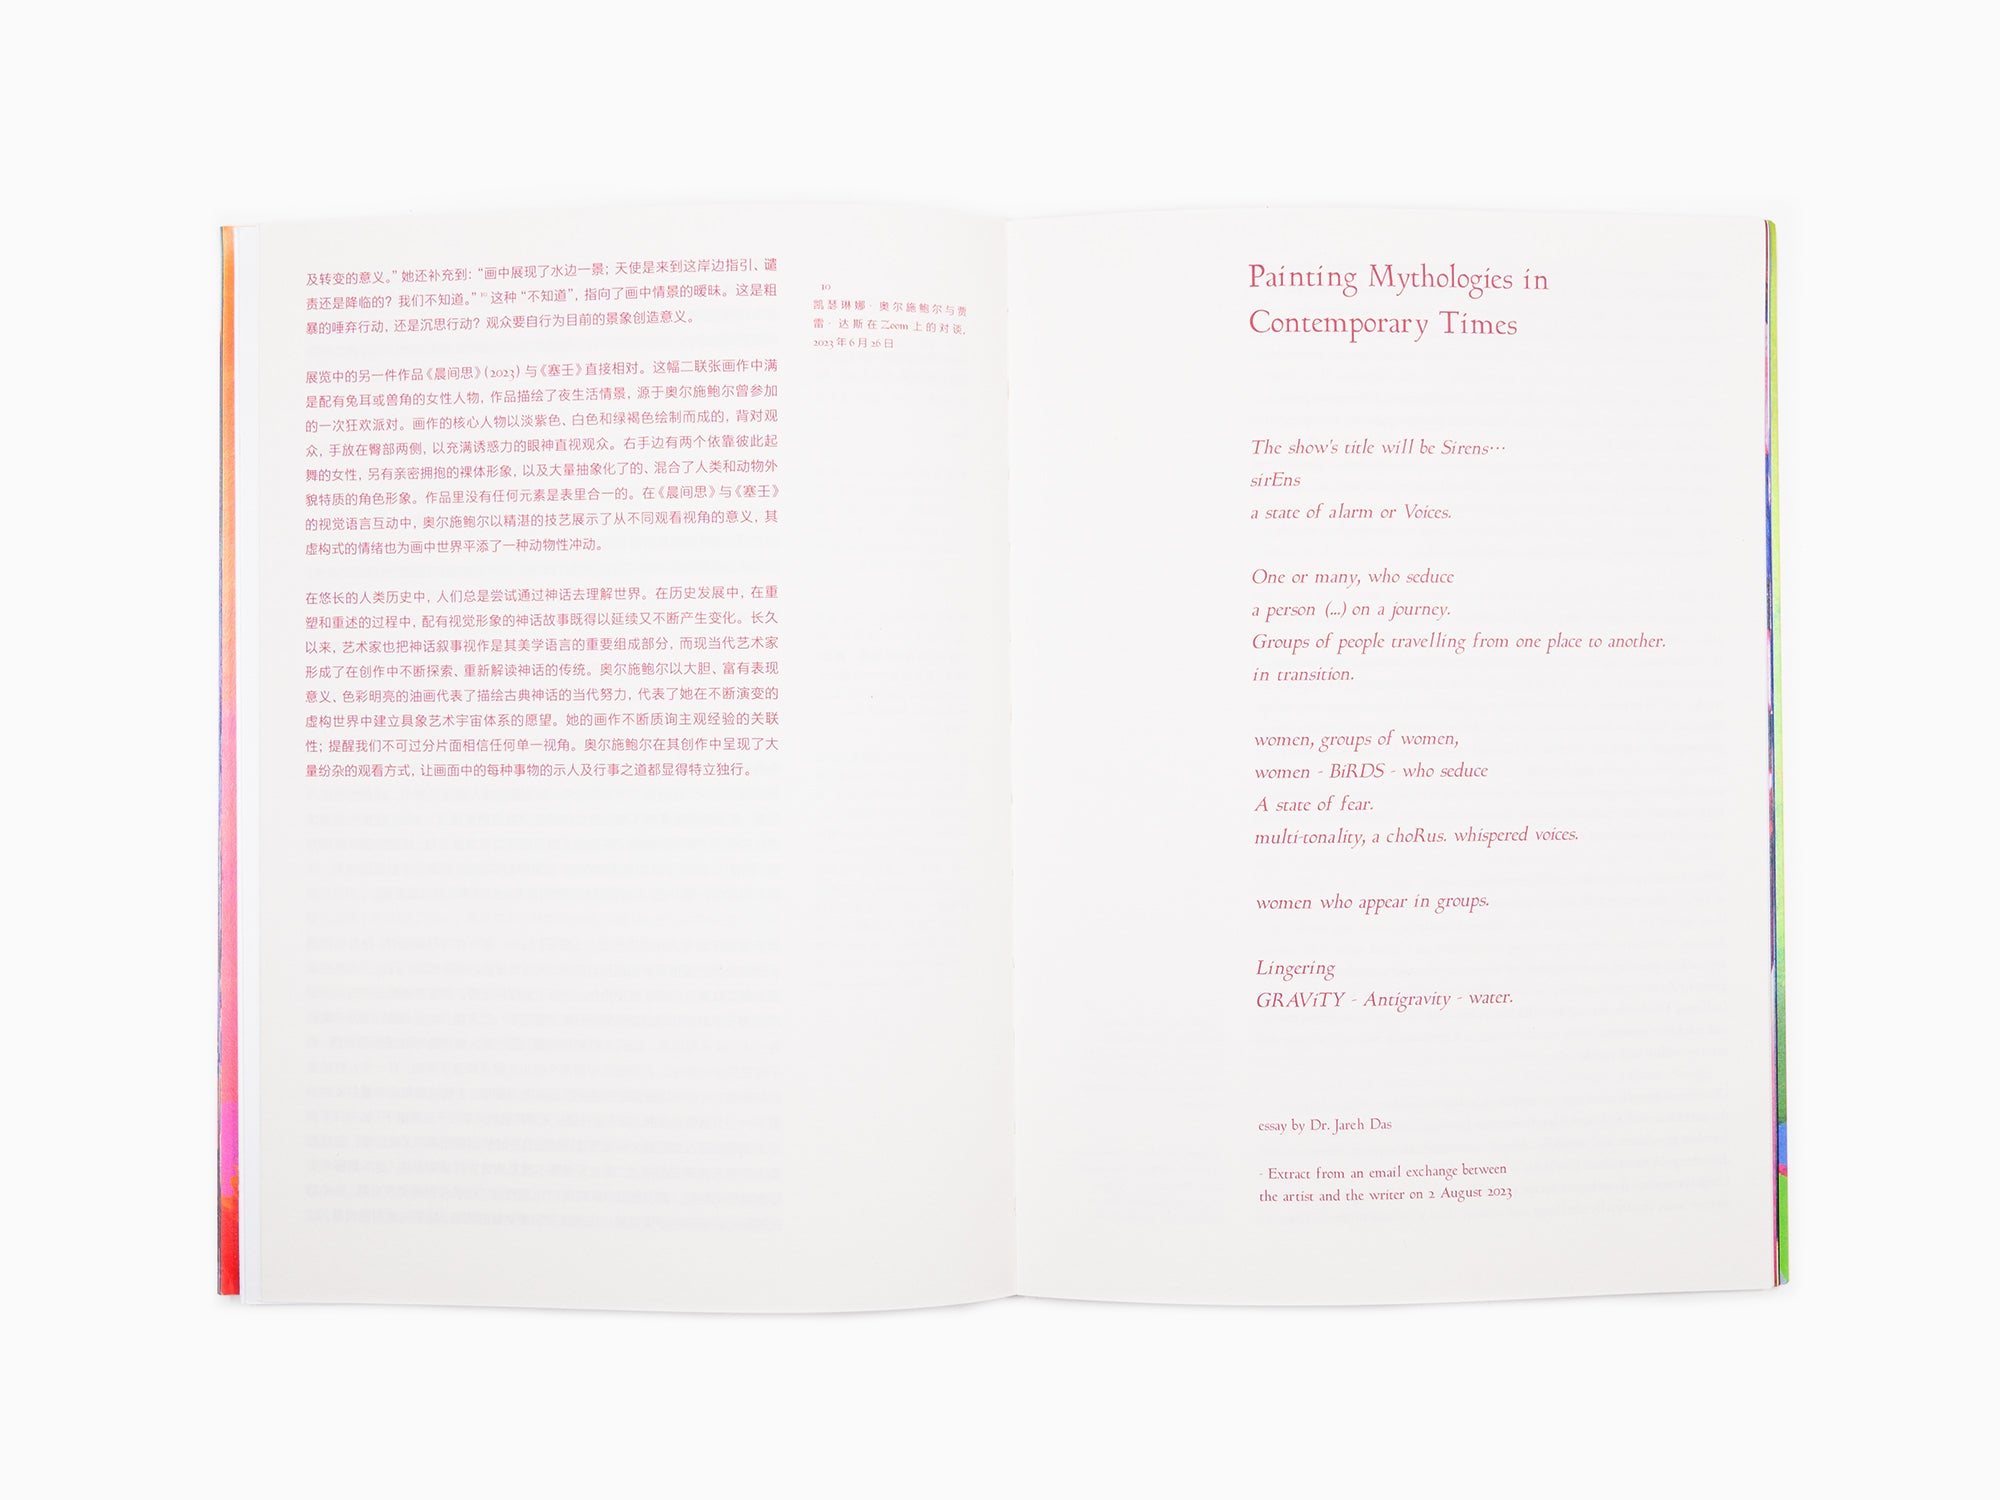 及转变的意义。” 她还补充到： “画中展现了水边一景；天使是来到这岸边指引、谴
责还是降临的？我们不知道。” ¹⁰ 这种 “不知道”，指向了画中情景的暧昧。这是粗
暴的唾弃行动，还是沉思行动？观众要自行为目前的景象创造意义。
展览中的另一件作品《晨间思》（2023）与《塞壬》直接相对。这幅二联张画作中满
是配有兔耳或兽角的女性人物，作品描绘了夜生活情景，源于奥尔施鲍尔曾参加
的一次狂欢派对。画作的核心人物以淡紫色、白色和绿褐色绘制而成的，背对观
众，手放在臀部两侧，以充满诱惑力的眼神直视观众。右手边有两个依靠彼此起
舞的女性，另有亲密拥抱的裸体形象，以及大量抽象化了的、混合了人类和动物外
貌特质的角色形象。作品里没有任何元素是表里合一的。在《晨间思》与《塞壬》
的视觉语言互动中，奥尔施鲍尔以精湛的技艺展示了从不同观看视角的意义，其
虚构式的情绪也为画中世界平添了一种动物性冲动。
在悠长的人类历史中，人们总是尝试通过神话去理解世界。在历史发展中，在重
塑和重述的过程中，配有视觉形象的神话故事既得以延续又不断产生变化。长久
以来，艺术家也把神话叙事视作是其美学语言的重要组成部分，而现当代艺术家
形成了在创作中不断探索、重新解读神话的传统。奥尔施鲍尔以大胆、富有表现
意义、色彩明亮的油画代表了描绘古典神话的当代努力，代表了她在不断演变的
虚构世界中建立具象艺术宇宙体系的愿望。她的画作不断质询主观经验的关联
性；提醒我们不可过分片面相信任何单一视角。奥尔施鲍尔在其创作中呈现了大
量纷杂的观看方式，让画面中的每种事物的示人及行事之道都显得特立独行。
10
凯瑟琳娜·奥尔施鲍尔与贾
雷·达斯在Zoom上的对谈，
2023年6月26日
Painting Mythologies in
Contemporary Times
The show's title will be Sirens…
sirEns
a state of alarm or Voices.
One or many, who seduce
a person (...) on a journey.
Groups of people travelling from one place to another.
in transition.
women, groups of women,
women - BiRDS - who seduce
A state of fear.
multi-tonality, a choRus. whispered voices.
women who appear in groups.
Lingering
GRAViTY - Antigravity - water.
essay by Dr. Jareh Das
- Extract from an email exchange between
the artist and the writer on 2 August 2023